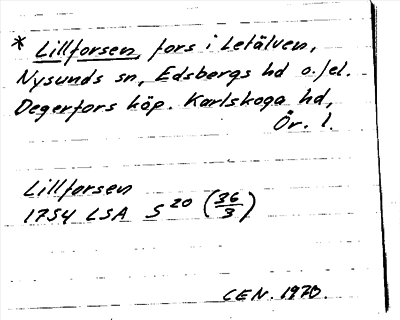 * Lillforsen, fors i Letälven,
Nysunds sn, Edsbergs hd o./el.
Degerfors köp. Karlskoga hd,
Ör. l.
Lillforsen
1754 LSA S 20 (36/3)
CEN. 1970.